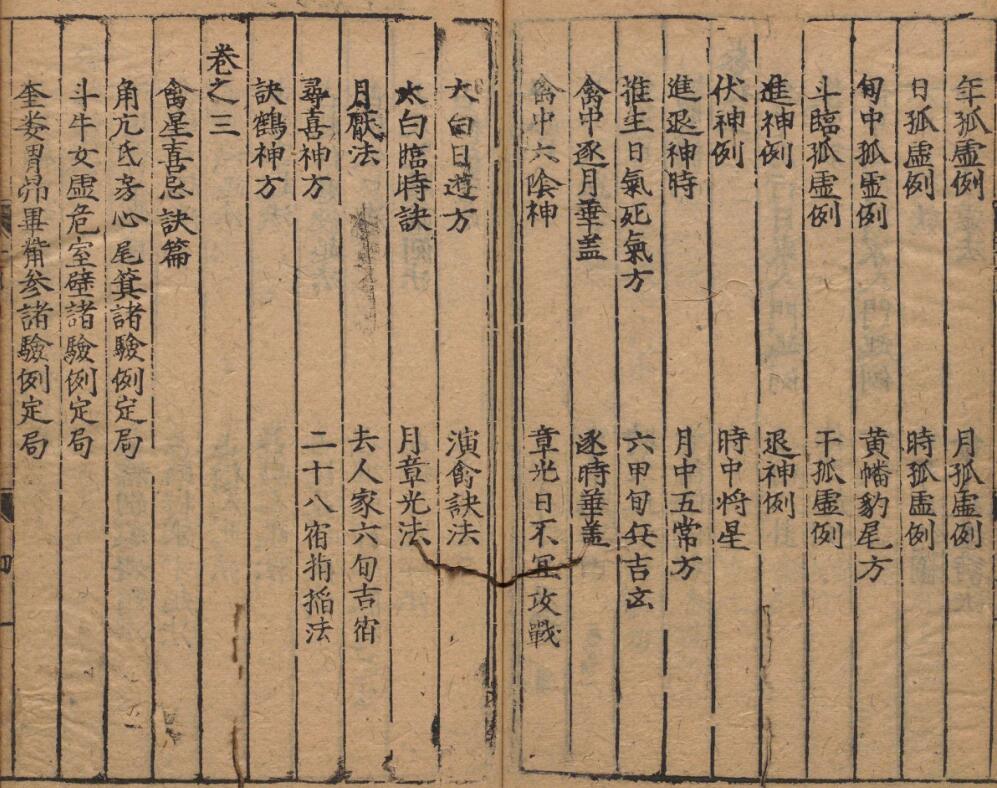 年孤虛例　月孤虛例
日孤虛例　時孤虛例
旬中孤虛例　黃幡豹尾方
斗臨孤虛例　干孤虛例
進神例　退神例
伏神例　時中将星
進退神時　月中五常方
推生日氣死氣方　六甲旬兵吉玄
禽中逐月華盖　逐時華盖
禽中六陰神　章光日不宜攻戰
大白日遊方　演禽訣法
太白臨時訣　月章光法
月厭法　去人家六旬吉宿
尋喜神方　二十八宿指掐法
訣鶴神方
卷之三
禽星喜忌訣篇
角亢氐房心尾箕諸驗例定局
斗牛女虛危室壁諸驗例定局
奎婁胃昴畢觜參諸驗例定局
四